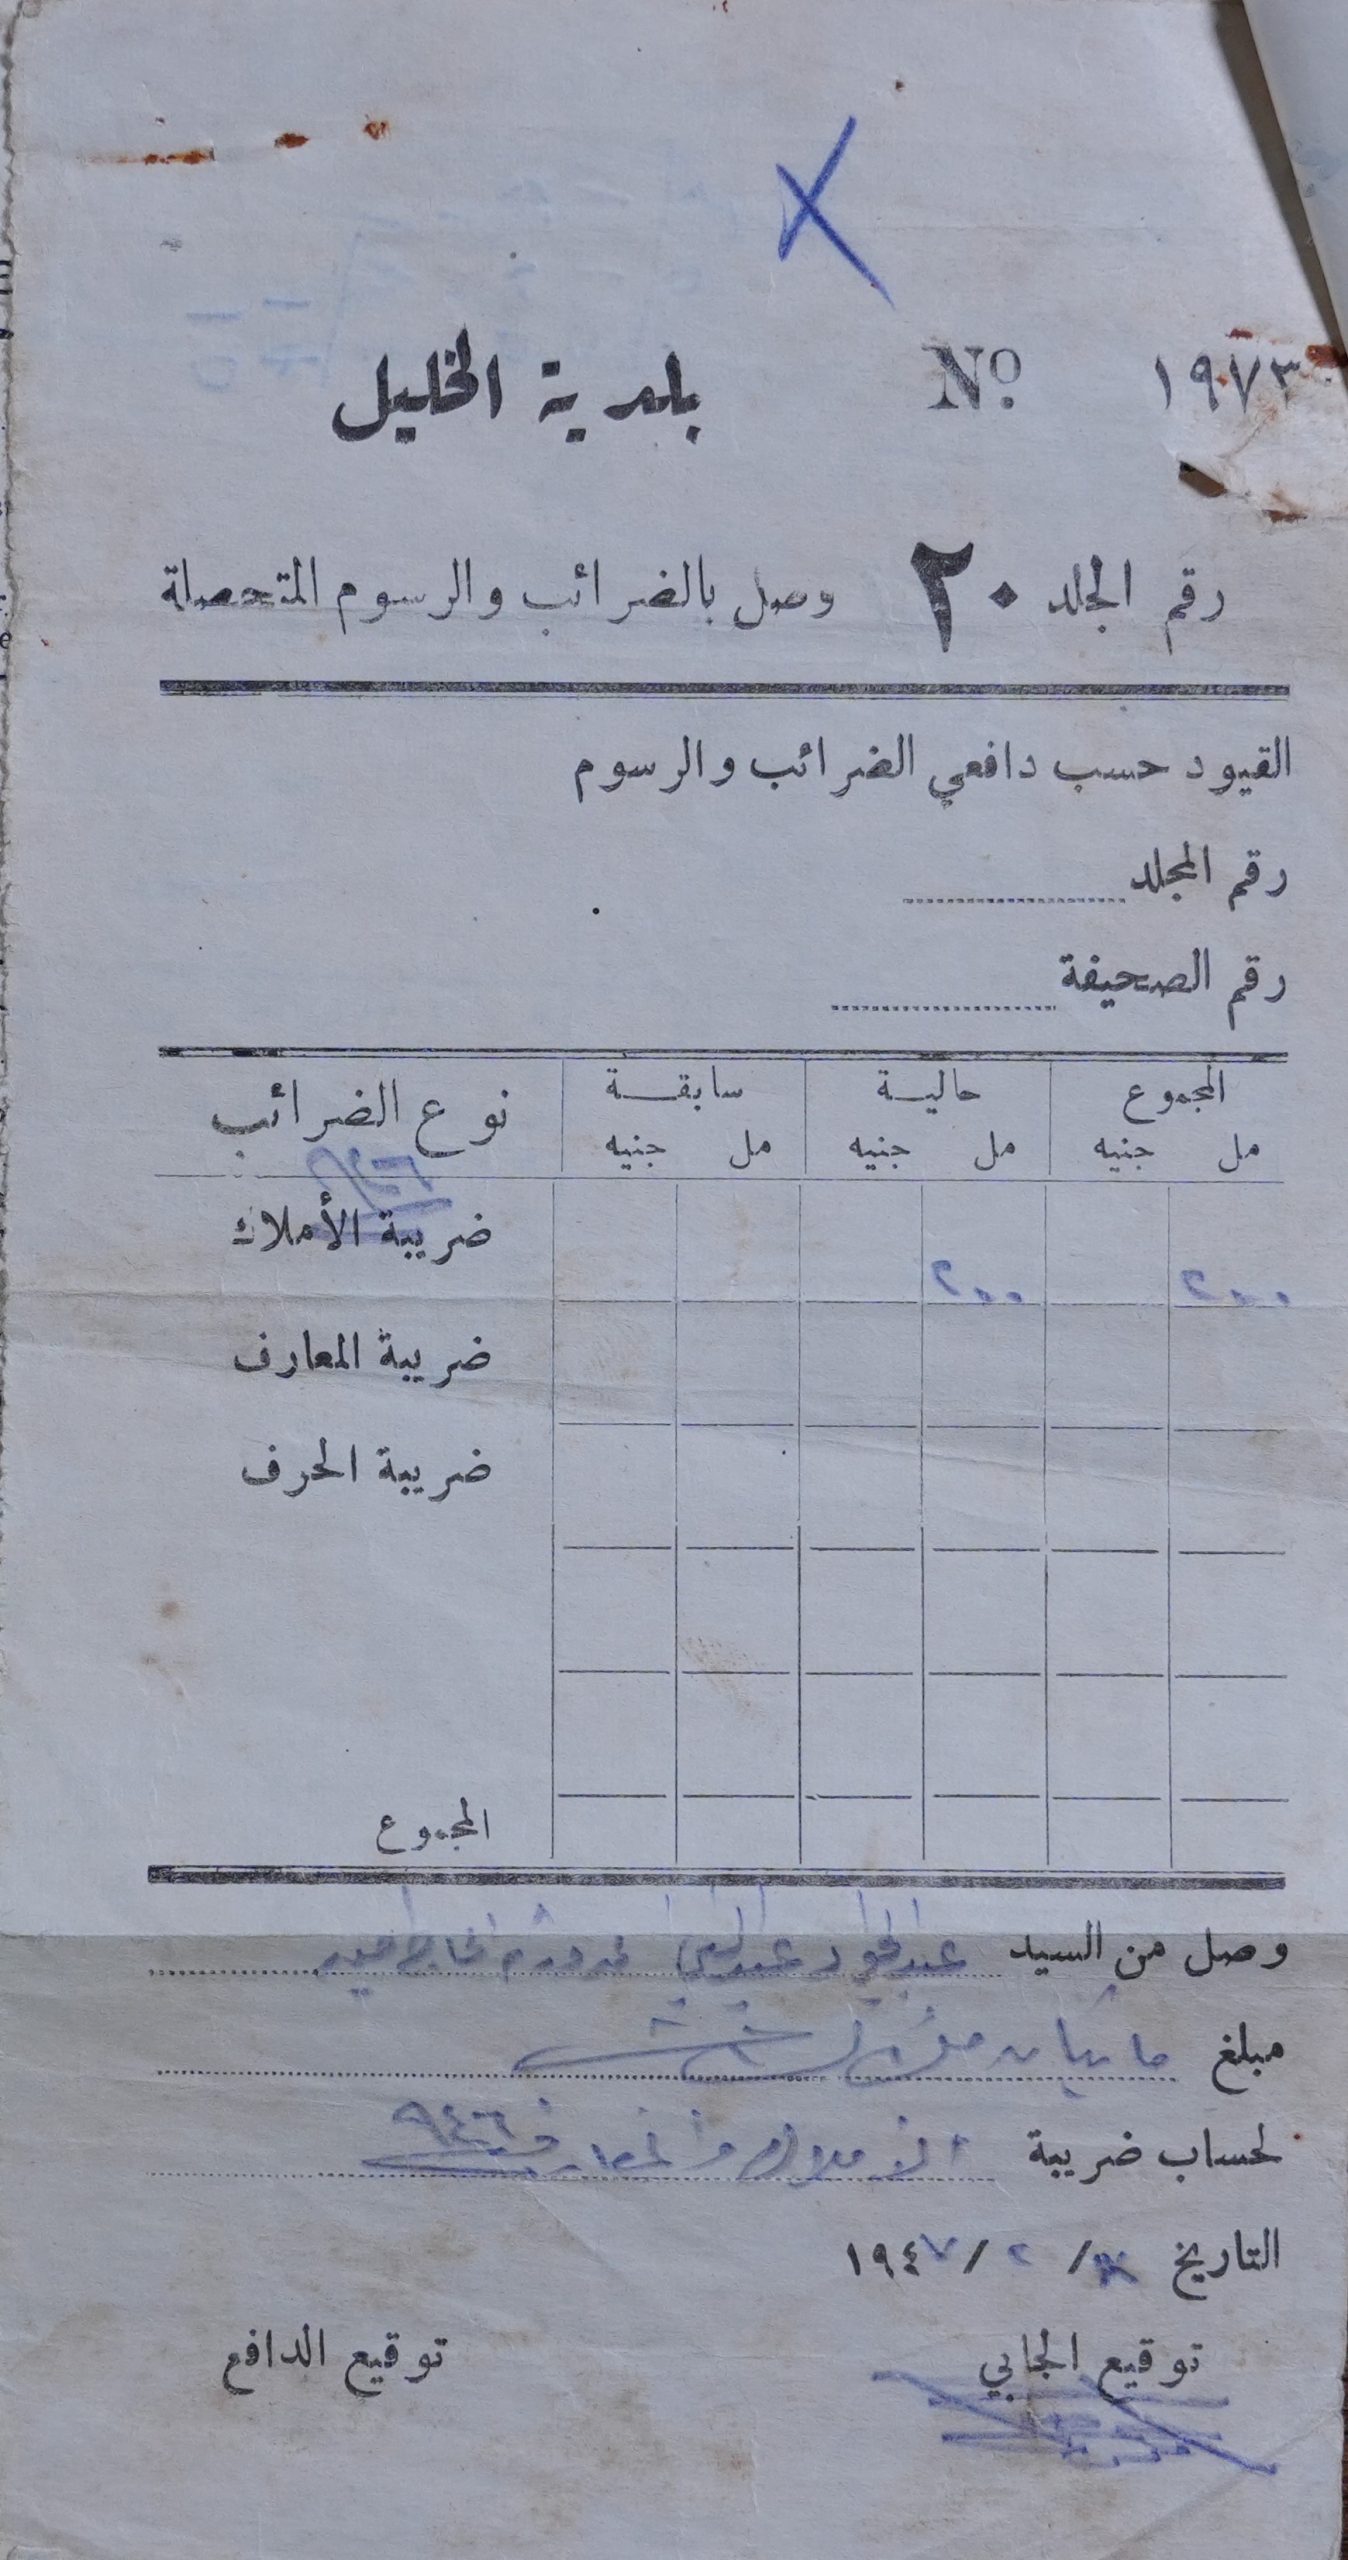 بلدية الخليل No. ١٩٧٣
رقم الجلد ٢٠ وصل بالضرائب والرسوم المتحصلة
القيود حسب دافعي الضرائب والرسوم
رقم المجلد
رقم الصحيفة
المجموع حالية سابقة نوع الضرائب
مل جنيه مل جنيه مل جنيه
ضريبة الأملاك
٢٠٠ ٢٠٠
ضريبة المعارف
ضريبة الحرف
المجموع
وصل من السيد عبد الجواد عبد النبي
مبلغ مايتان مل
لحساب ضريبة الاملاك والمعارف ٩٤٦
التاريخ / ٢ / ١٩٤٧
توقيع الجابي توقيع الدافع